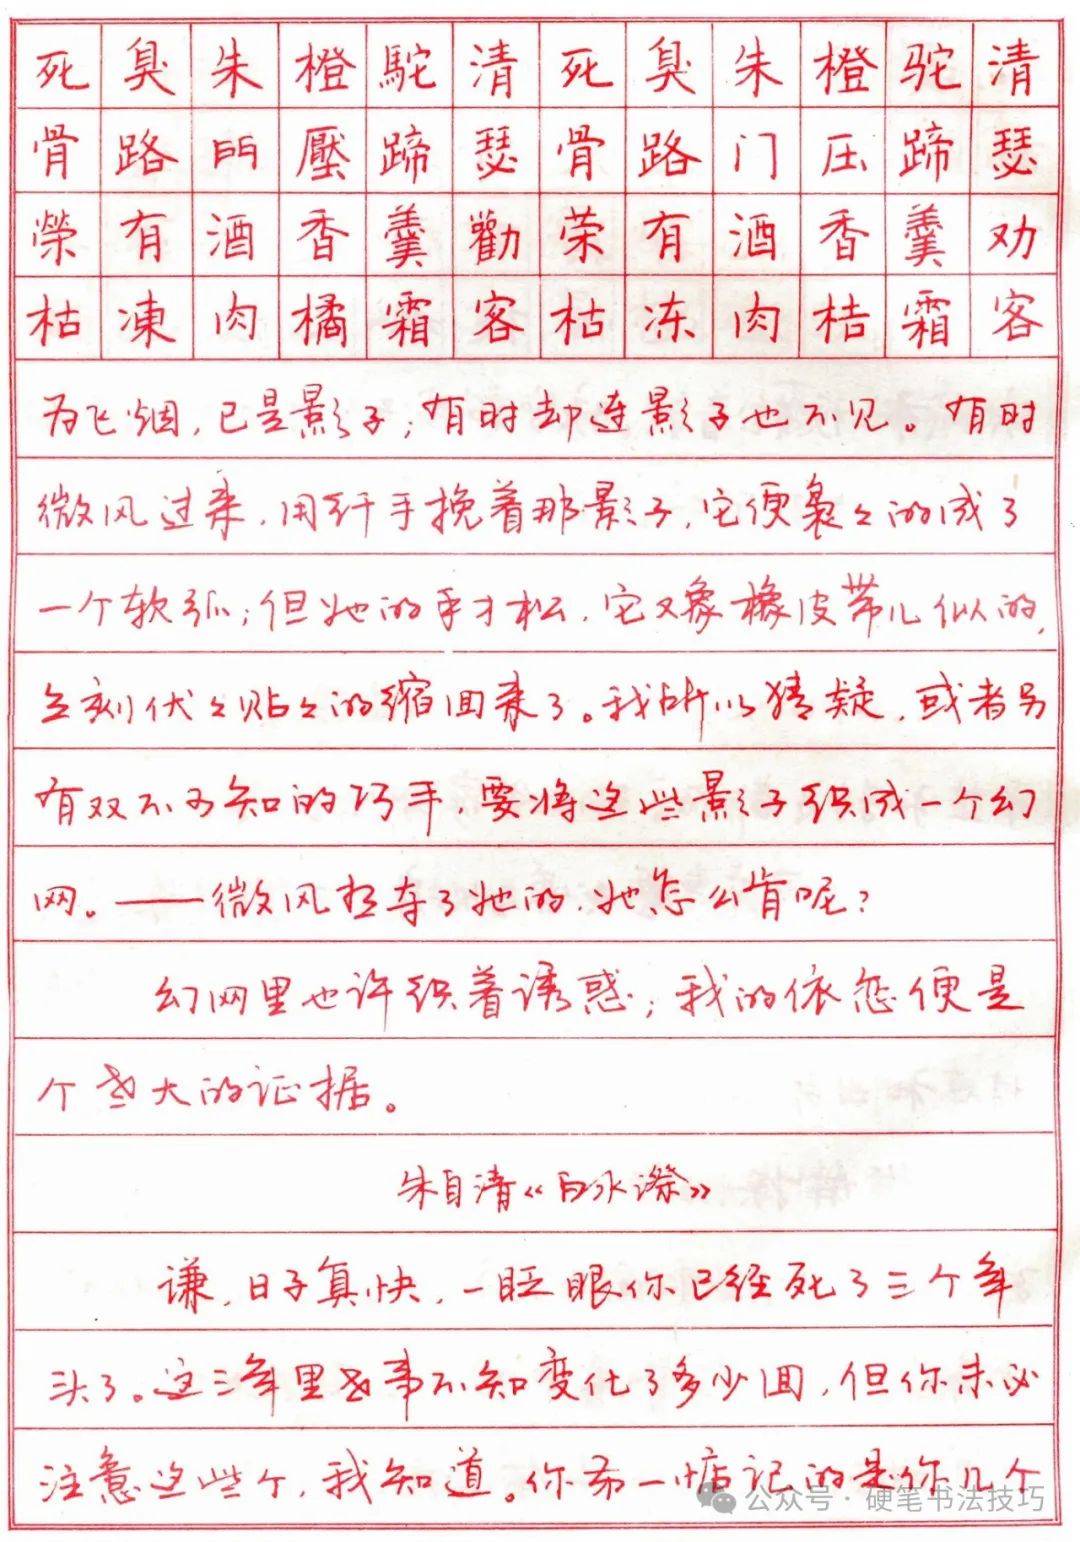 死臭朱橙駝清死臭朱橙驼清
骨路門壓蹄瑟骨路门压蹄瑟
榮有酒香羹勸荣有酒香羹劝
枯凍肉橘霜客枯冻肉桔霜客
为飞烟，已是影子；有时却连影子也不见。有时
微风过来，用纤手挽着那影子，它便袅々的成了
一个软弧；但她的手才松，它又象橡皮带儿似的，
立刻伏々贴々的缩回来了。我所以猜疑，或者另
有双不可知的巧手，要将这些影子织成一个幻
网。——微风想夺了她的，她怎么肯呢？
幻网里也许织着诱惑；我的依恋便是
个老大的证据。
朱自清《白水漈》
谦，日子真快，一眨眼你已经死了三个年
头了。这三年里世事不知变化了多少回，但你未必
注意这些个，我知道。你第一惦记的是你几个
公众号·硬笔书法技巧